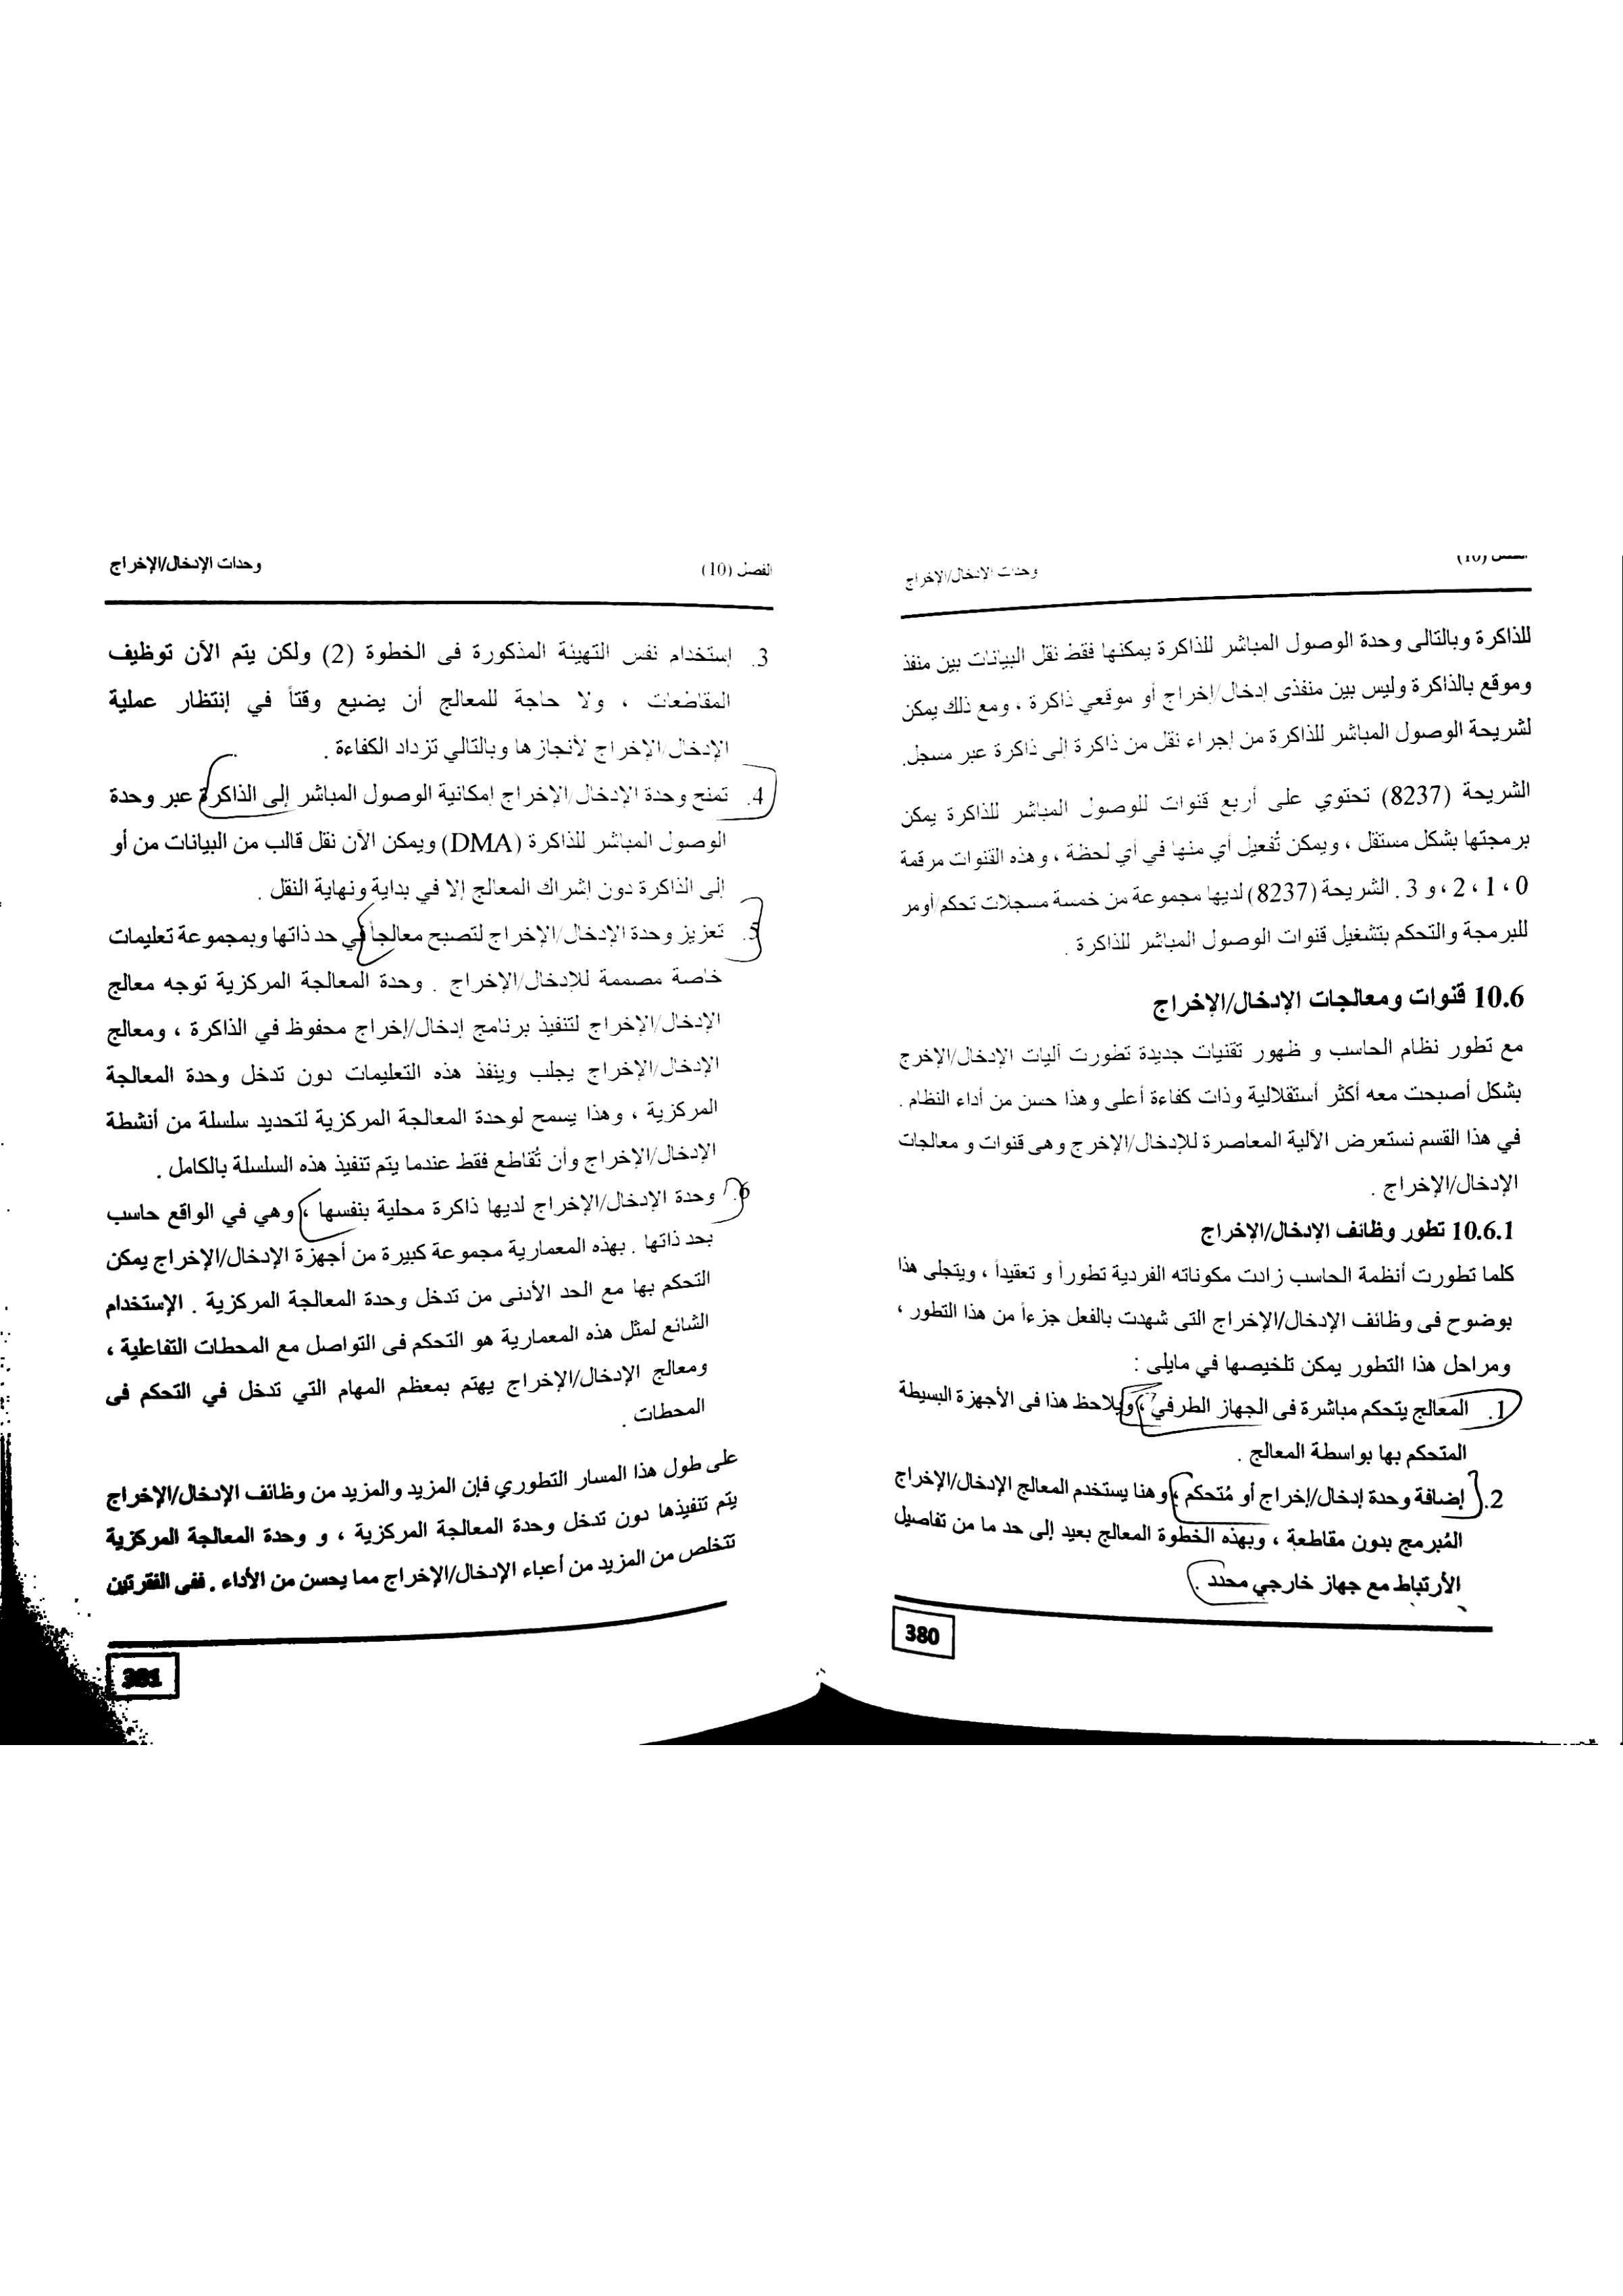 الفصل (10)
وحدات الإدخال/الإخراج
للذاكرة وبالتالى وحدة الوصول المباشر للذاكرة يمكنها فقط نقل البيانات بين منفذ
وموقع بالذاكرة وليس بين منفذى إدخال/إخراج أو موقعي ذاكرة ، ومع ذلك يمكن
لشريحة الوصول المباشر للذاكرة من إجراء نقل من ذاكرة إلى ذاكرة عبر مسجل.
الشريحة (8237) تحتوي على أربع قنوات للوصول المباشر للذاكرة يمكن
برمجتها بشكل مستقل ، ويمكن تُفعيل أي منها في أي لحظة ، وهذه القنوات مرقمة
0 ، 1 ، 2 ، و 3 . الشريحة (8237) لديها مجموعة من خمسة مسجلات تحكم/أومر
للبرمجة والتحكم بتشغيل قنوات الوصول المباشر للذاكرة .
10.6 قنوات ومعالجات الإدخال/الإخراج
مع تطور نظام الحاسب و ظهور تقنيات جديدة تطورت آليات الإدخال/الإخرج
بشكل أصبحت معه أكثر أستقلالية وذات كفاءة أعلى وهذا حسن من أداء النظام .
في هذا القسم نستعرض الآلية المعاصرة للإدخال/الإخرج وهى قنوات و معالجات
الإدخال/الإخراج .
10.6.1 تطور وظائف الإدخال/الإخراج
كلما تطورت أنظمة الحاسب زادت مكوناته الفردية تطوراً و تعقيداً ، ويتجلى هذا
بوضوح فى وظائف الإدخال/الإخراج التى شهدت بالفعل جزءاً من هذا التطور ،
ومراحل هذا التطور يمكن تلخيصها في مايلى :
1. المعالج يتحكم مباشرة فى الجهاز الطرفي ، ويلاحظ هذا فى الأجهزة البسيطة
المتحكم بها بواسطة المعالج .
2. إضافة وحدة إدخال/إخراج أو مُتحكم ، وهنا يستخدم المعالج الإدخال/الإخراج
المُبرمج بدون مقاطعة ، وبهذه الخطوة المعالج بعيد إلى حد ما من تفاصيل
الأرتباط مع جهاز خارجي محدد .
380
الفصل (10)
وحدات الإدخال/الإخراج
3. إستخدام نفس التهيئة المذكورة فى الخطوة (2) ولكن يتم الآن توظيف
المقاطعات ، ولا حاجة للمعالج أن يضيع وقتاً في إنتظار عملية
الإدخال/الإخراج لأنجازها وبالتالي تزداد الكفاءة .
4. تمنح وحدة الإدخال/الإخراج إمكانية الوصول المباشر إلى الذاكرة عبر وحدة
الوصول المباشر للذاكرة (DMA) ويمكن الآن نقل قالب من البيانات من أو
إلى الذاكرة دون إشراك المعالج إلا في بداية ونهاية النقل .
5. تعزيز وحدة الإدخال/الإخراج لتصبح معالجاً في حد ذاتها وبمجموعة تعليمات
خاصة مصممة للإدخال/الإخراج . وحدة المعالجة المركزية توجه معالج
الإدخال/الإخراج لتنفيذ برنامج إدخال/إخراج محفوظ في الذاكرة ، ومعالج
الإدخال/الإخراج يجلب وينفذ هذه التعليمات دون تدخل وحدة المعالجة
المركزية ، وهذا يسمح لوحدة المعالجة المركزية لتحديد سلسلة من أنشطة
الإدخال/الإخراج وأن تُقاطع فقط عندما يتم تنفيذ هذه السلسلة بالكامل .
6. وحدة الإدخال/الإخراج لديها ذاكرة محلية بنفسها ، وهي في الواقع حاسب
بحد ذاتها . بهذه المعمارية مجموعة كبيرة من أجهزة الإدخال/الإخراج يمكن
التحكم بها مع الحد الأدنى من تدخل وحدة المعالجة المركزية . الإستخدام
الشائع لمثل هذه المعمارية هو التحكم فى التواصل مع المحطات التفاعلية ،
ومعالج الإدخال/الإخراج يهتم بمعظم المهام التي تدخل في التحكم فى
المحطات .
على طول هذا المسار التطوري فإن المزيد والمزيد من وظائف الإدخال/الإخراج
يتم تنفيذها دون تدخل وحدة المعالجة المركزية ، و وحدة المعالجة المركزية
تتخلص من المزيد من أعباء الإدخال/الإخراج مما يحسن من الأداء . ففى الفقرتين
381